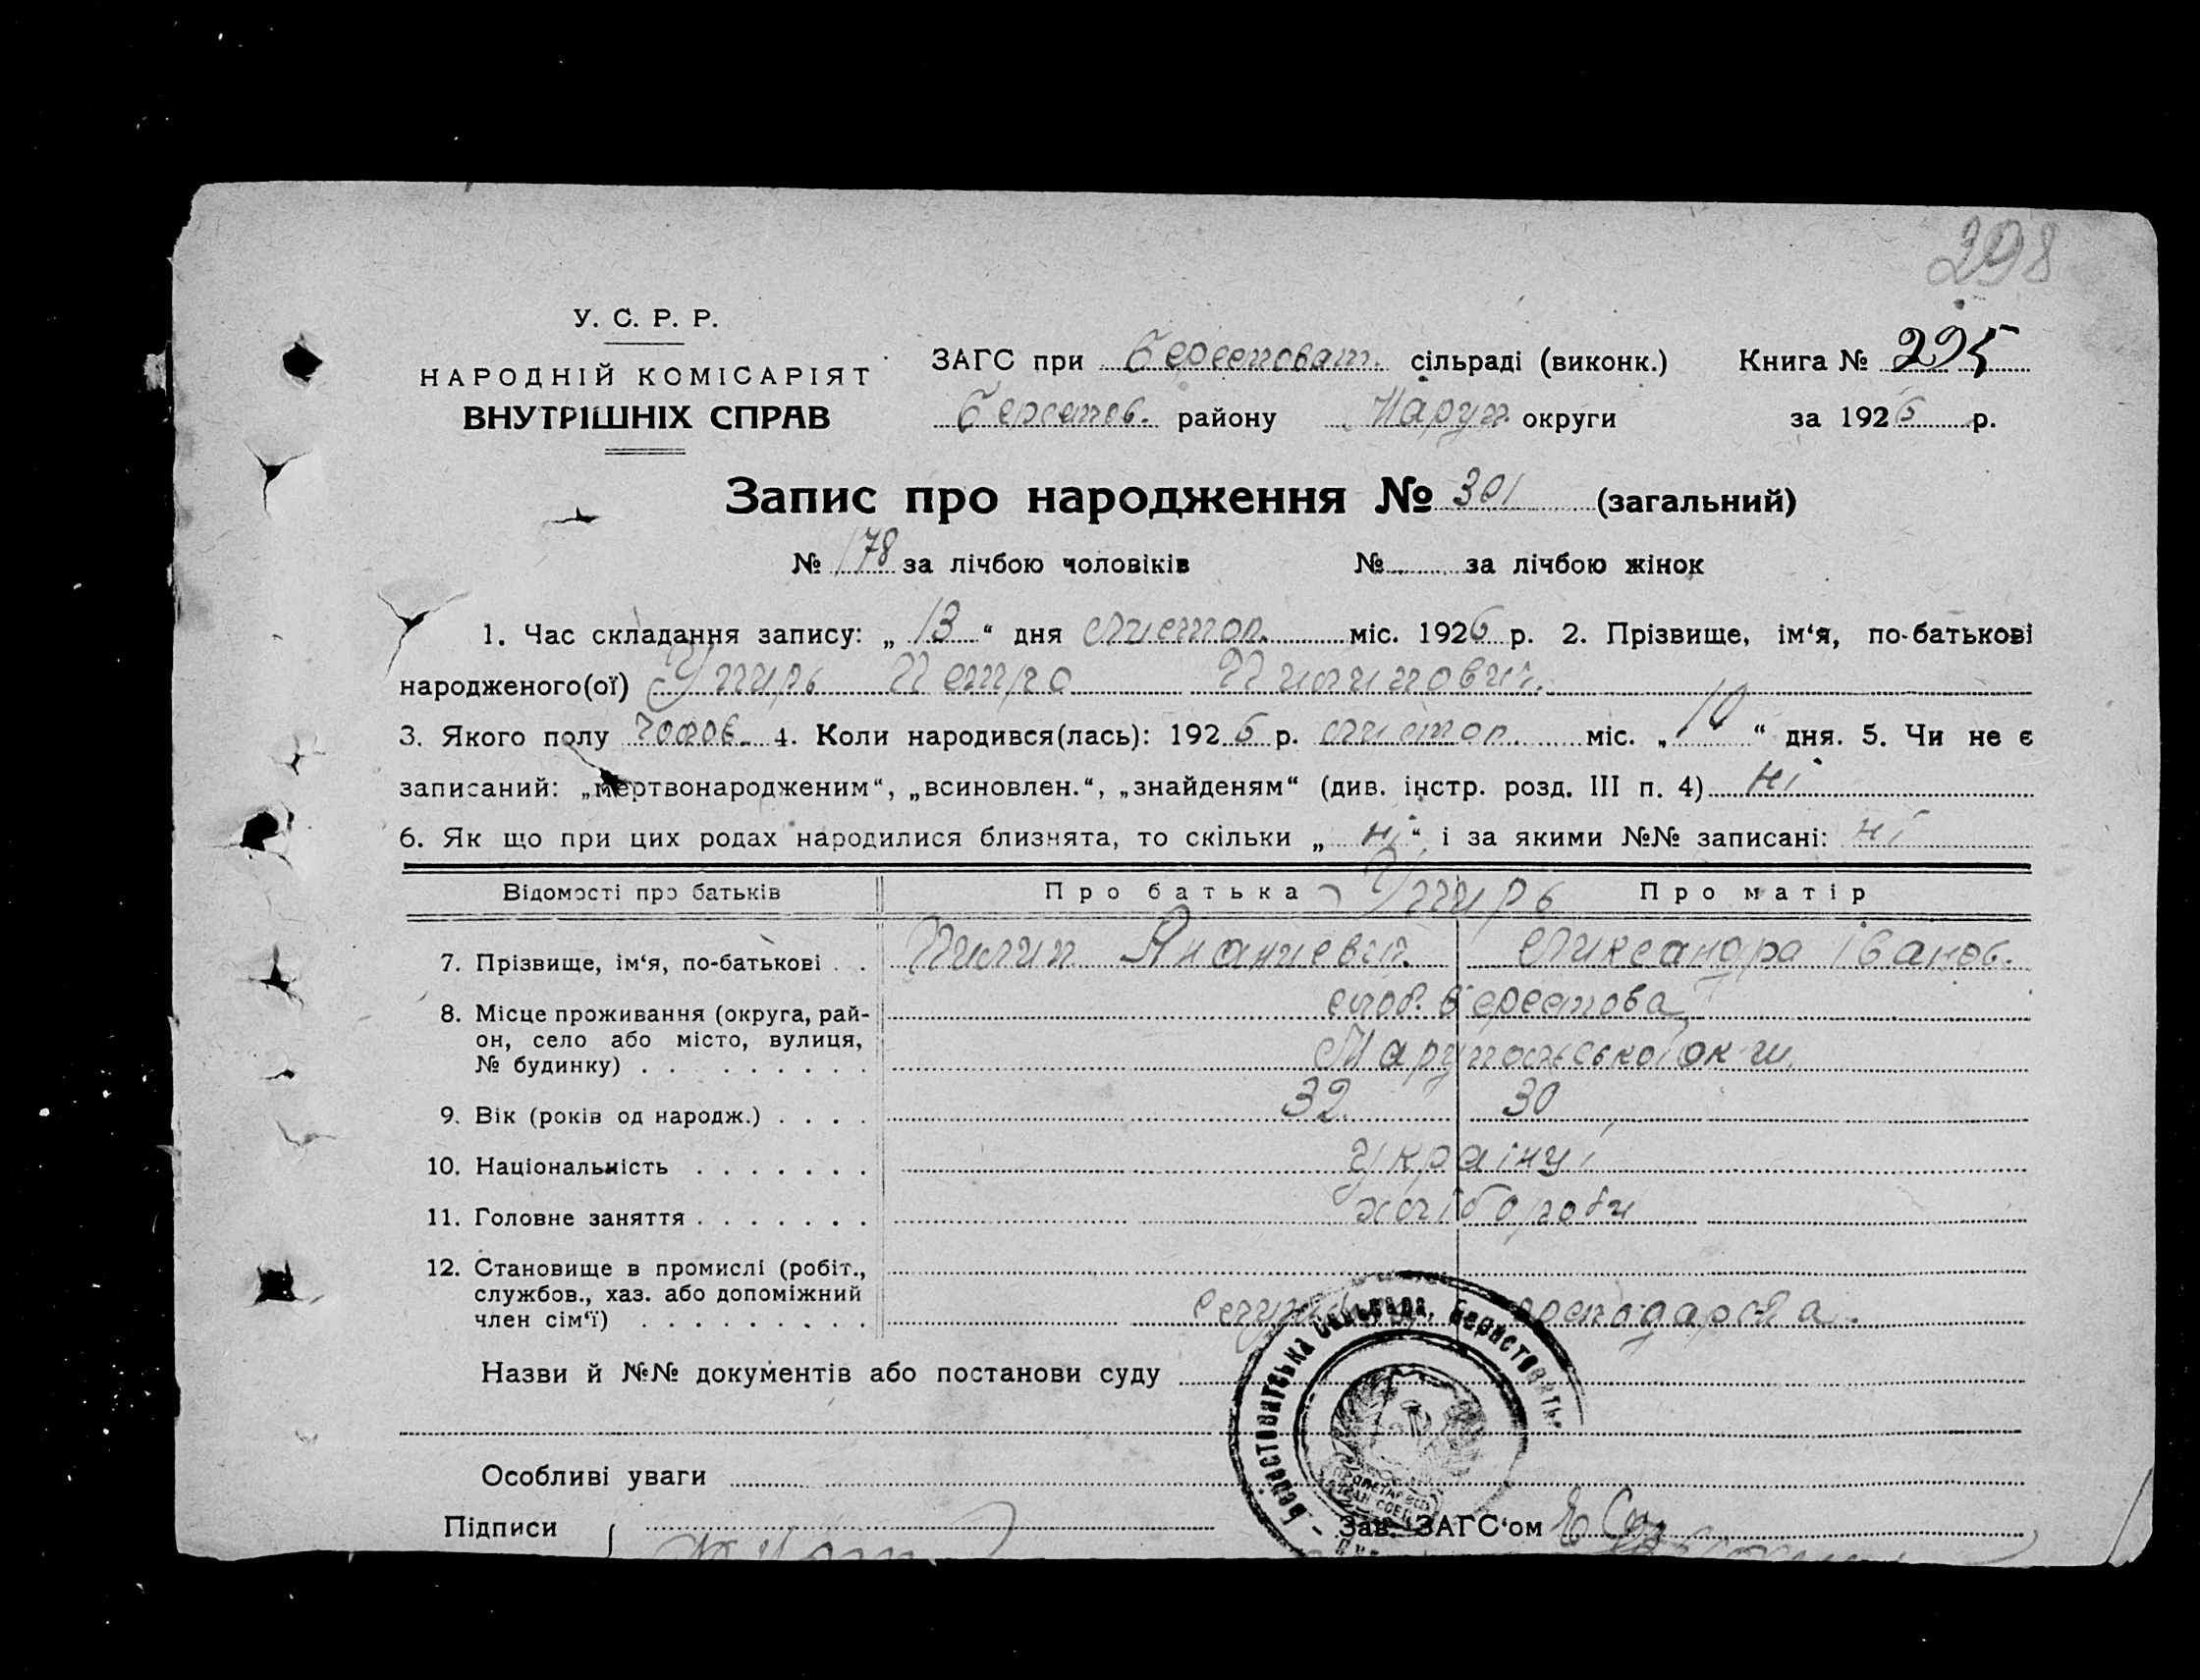 298
У. С. Р. Р.
НАРОДНІЙ КОМІСАРІЯТ
ВНУТРІШНІХ СПРАВ
ЗАГС при Берестоват. сільраді (виконк.) Книга № 295
Берестов. району Маруп. округи за 1926 р.
Запис про народження № 301 (загальний)
№ 178 за лічбою чоловіків № за лічбою жінок
1. Час складання запису: „ 13 “ дня листоп. міс. 1926 р. 2. Прізвище, ім‘я, по-батькові
народженого(ої) Упирь Петро Пилипович.
3. Якого полу чолов. 4. Коли народився(лась): 1926 р. листоп. міс. „ 10 “ дня. 5. Чи не є
записаний: „мертвонародженим“, „всиновлен.“, „знайденям“ (див. інстр. розд. III п. 4) ні
6. Як що при цих родах народилися близнята, то скільки „ ні “ і за якими №№ записані: ні
Відомості про батьків Про батька Упирь Про матір
7. Прізвище, ім‘я, по-батькові . . Пилип Ананиевич. Олександра Іванов.
8. Місце проживання (округа, рай-
он, село або місто, вулиця,
№ будинку) . . . . . . . . .
слоб. Берестова
Марупольської ок-и.
9. Вік (років од народж.) . . . . 32 30
10. Національність . . . . . . . українці
11. Головне заняття . . . . . . . хлібороби
12. Становище в промислі (робіт.,
службов., хаз. або допоміжний
член сім‘ї) . . . . . . . . .
Берестовитська Сельрада, Берестовить.
Назви й №№ документів або постанови суду
Особливі уваги
Підписи Зав. ЗАГС‘ом